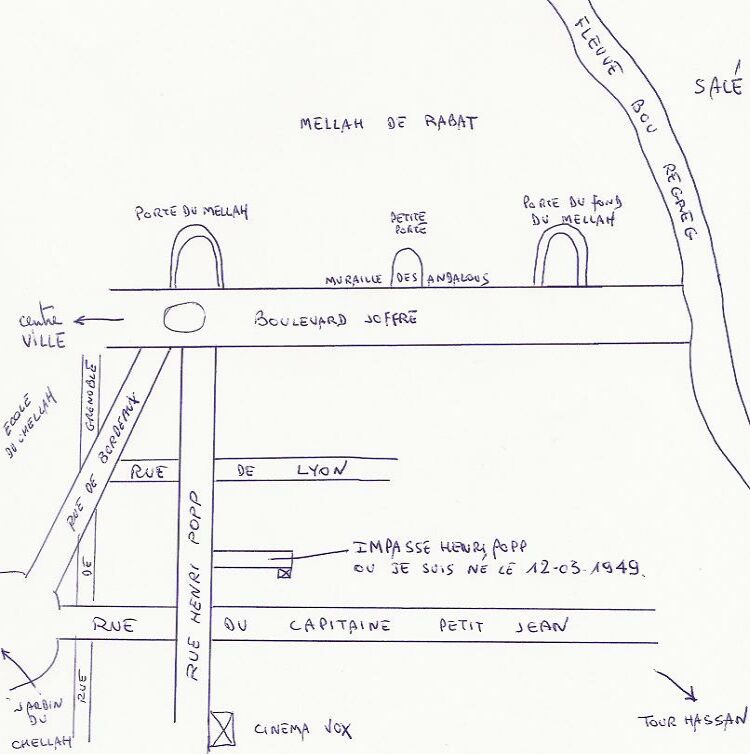 FLEUVE BOU REGREG
SALÉ
MELLAH DE RABAT
PORTE DU MELLAH
PETITE
PORTE
PORTE DU FOND
DU MELLAH
MURAILLE DES ANDALOUS
centre
VILLE
BOULEVARD JOFFRE
ECOLE
DU CHELLAH
RUE DE GRENOBLE
RUE DE BORDEAUX
RUE DE LYON
RUE HENRI POPP
IMPASSE HENRI POPP
OU JE SUIS NÉ LE 12-03-1949.
RUE DU CAPITAINE PETIT JEAN
JARDIN
DU
CHELLAH
TOUR HASSAN
CINEMA VOX